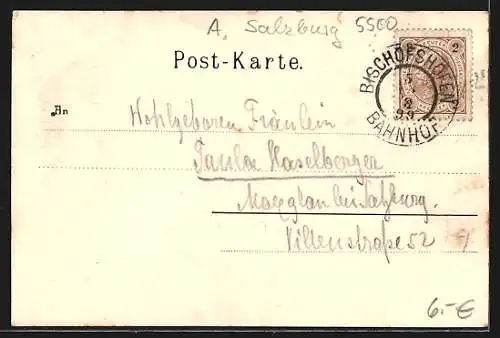 A, Salzburg 5500
Post-Karte.
2
BISCHOFSHOFEN
5
8
99
BAHNHOF
An
Wohlgeboren Fräulein
Paula Haselberger
Maxglan bei Salzburg.
Villenstraße 52
6.-€